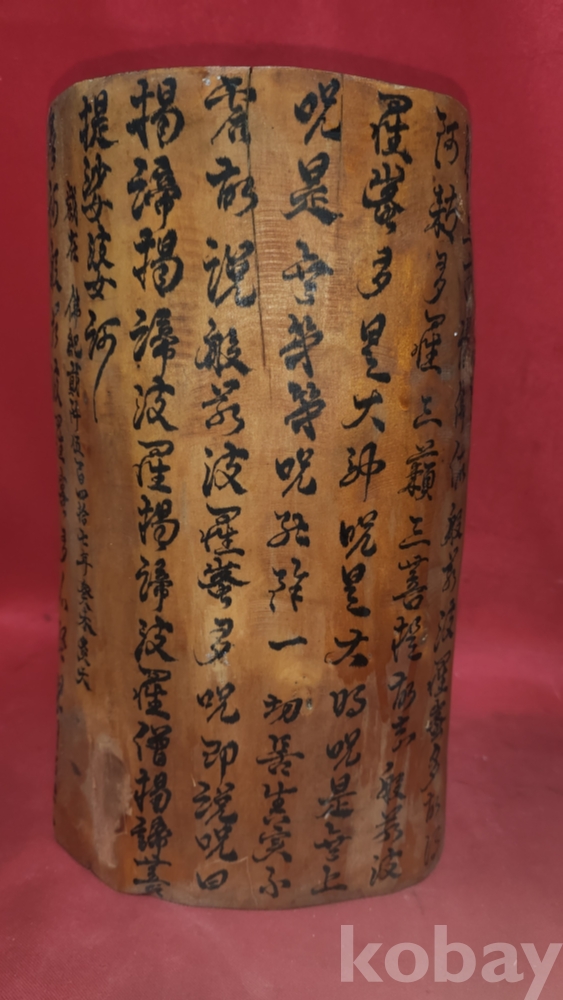 般若波羅蜜多故得
阿耨多羅三藐三菩提故知般若波
羅蜜多是大神呪是大明呪是無上
呪是無等等呪能除一切苦真實不
虛故說般若波羅蜜多呪即說呪曰
揭諦揭諦波羅揭諦波羅僧揭諦菩
提娑婆訶
歲在 佛紀貳阡五百四拾七年 癸未
訶般若波羅蜜多心經
kobay